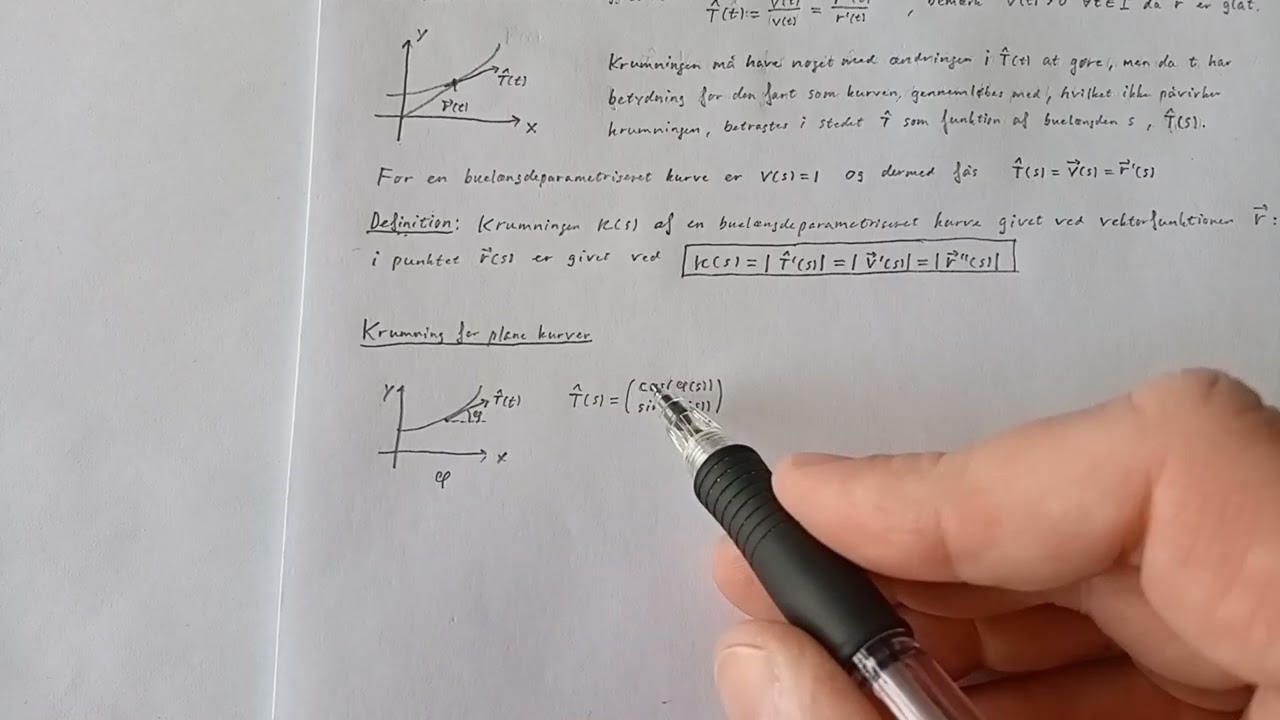 T̂(t) := v⃗(t)/v(t) = r⃗'(t)/r'(t) , bemærk v(t) > 0 ∀t∈I da r er glat.
Krumningen må have noget med ændringen i T̂(t) at gøre, men da t har
betydning for den fart som kurven, gennemløbes med, hvilket ikke påvirker
krumningen, betragtes i stedet T̂ som funktion af buelængden s, T̂(s).
y
T̂(t)
r⃗(t)
x
For en buelængdeparametriseret kurve er v(s)=1 og dermed fås T̂(s) = v⃗(s) = r⃗'(s)
Definition: Krumningen κ(s) af en buelængdeparametriseret kurve givet ved vektorfunktionen r⃗:
i punktet r⃗(s) er givet ved κ(s) = | T̂'(s)| = | v⃗'(s)| = | r⃗''(s)|
Krumning for plane kurver
y
T̂(t)
φ
x
φ
T̂(s) = (cos(φ(s))